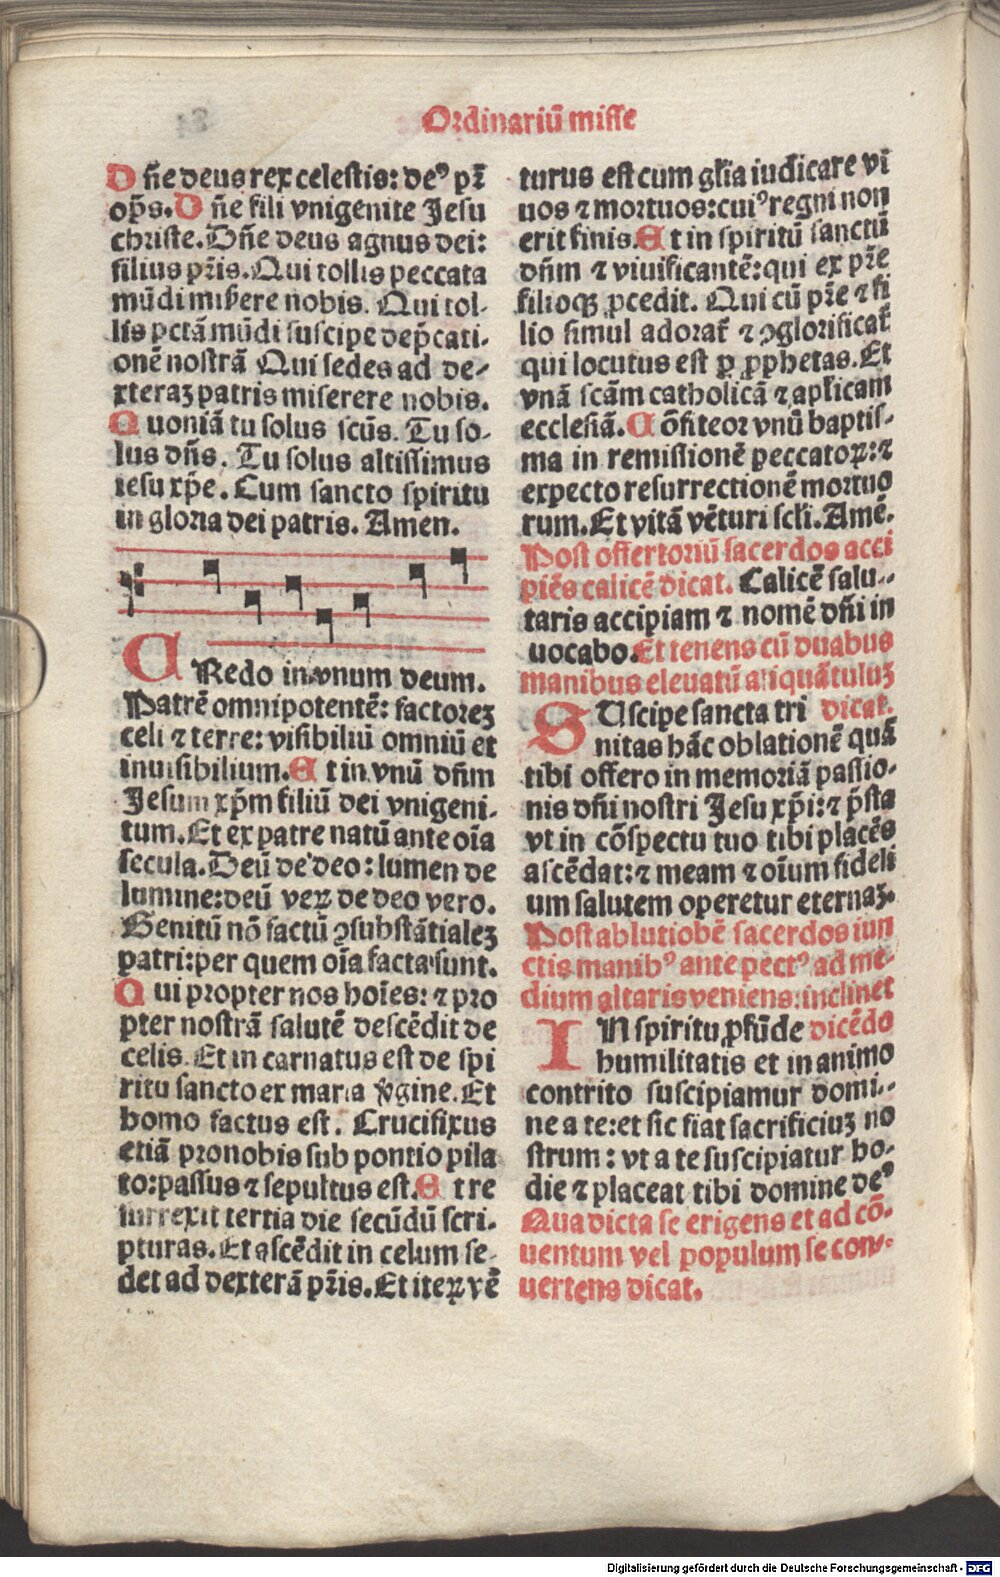 Ordinariū misse
Dñe deus rex celestis: deꝰ pr̄
op̄s. Dñe fili vnigenite Jesu
christe. Dñe deus agnus dei:
filius pr̄is. Qui tollis peccata
mūdi misere nobis. Qui tol-
lis pctā mūdi suscipe dep̄cati-
onē nostrā Qui sedes ad de-
xteraꝫ patris miserere nobis.
Quoniā tu solus scūs. Tu so-
lus dñs. Tu solus altissimus
iesu xp̄e. Cum sancto spiritu
in gloria dei patris. Amen.
CRedo in vnum deum.
Patrē omnipotentē: factoreꝫ
celi ⁊ terre: visibiliū omniū et
inuisibilium. Et in vnū dñm
Jesum xp̄m filiū dei vnigeni-
tum. Et ex patre natū ante oīa
secula. Deū de deo: lumen de
lumine: deū veꝝ de deo vero.
Genitū nō factū ꝯsubstātialeꝫ
patri: per quem oīa facta sunt.
Qui propter nos hoīes: ⁊ pro
pter nostrā salutē descēdit de
celis. Et in carnatus est de spi
ritu sancto ex maria v̄gine. Et
homo factus est. Crucifixus
etiā pronobis sub pontio pila
to: passus ⁊ sepultus est. Et re
surrexit tertia die secūdū scri-
pturas. Et ascēdit in celum se-
det ad dexterā pr̄is. Et iteꝝ vē
turus est cum gl̄ia iudicare vi
uos ⁊ mortuos: cuiꝰ regni non
erit finis. Et in spiritū sanctū
dñm ⁊ viuificantē: qui ex pr̄e
filioqꝫ ꝓcedit. Qui cū pr̄e ⁊ fi
lio simul adorat̄ ⁊ ꝯglorificat̄
qui locutus est ꝑ ꝓphetas. Et
vnā scām catholicā ⁊ apl̄icam
ecclesiā. Cōfiteor vnū baptis-
ma in remissionē peccatoꝝ: ⁊
expecto resurrectionē mortuo
rum. Et vitā vēturi scl̄i. Amē.
Post offertoriū sacerdos acci
piēs calicē dicat. Calicē salu-
taris accipiam ⁊ nomē dñi in
uocabo. Et tenens cū duabus
manibus eleuatū aliquātuluꝫ
SUscipe sancta tri dicat.
nitas hāc oblationē quā
tibi offero in memoriā passio-
nis dñi nostri Jesu xp̄i: ⁊ p̄sta
vt in cōspectu tuo tibi placēs
ascēdat: ⁊ meam ⁊ oīum fideli
um salutem operetur eternaꝫ.
Post ablutiobē sacerdos iun
ctis manibꝰ ante pectꝰ ad me-
dium altaris veniens: inclinet
IN spiritu ꝓfūde dicēdo
humilitatis et in animo
contrito suscipiamur domi-
ne a te: et sic fiat sacrificiuꝫ no
strum: vt a te suscipiatur ho-
die ⁊ placeat tibi domine deꝰ
Qua dicta se erigens et ad cō-
uentum vel populum se con-
uertens dicat.
Digitalisierung gefördert durch die Deutsche Forschungsgemeinschaft - DFG